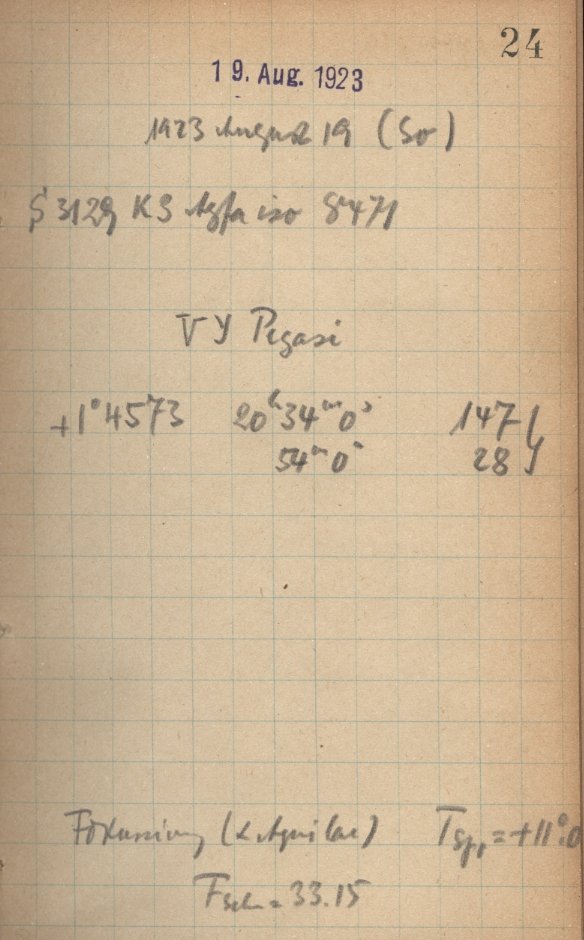 24
19. Aug. 1923
1923 August 19 (So)
S 3129 KS Agfa iso 8471
VY Pegasi
+1°4573 20ʰ34ᵐ0ˢ 147
54ᵐ0ˢ 28
Fokussierung (α Aquilae) T = +11°.0
F = 33.15